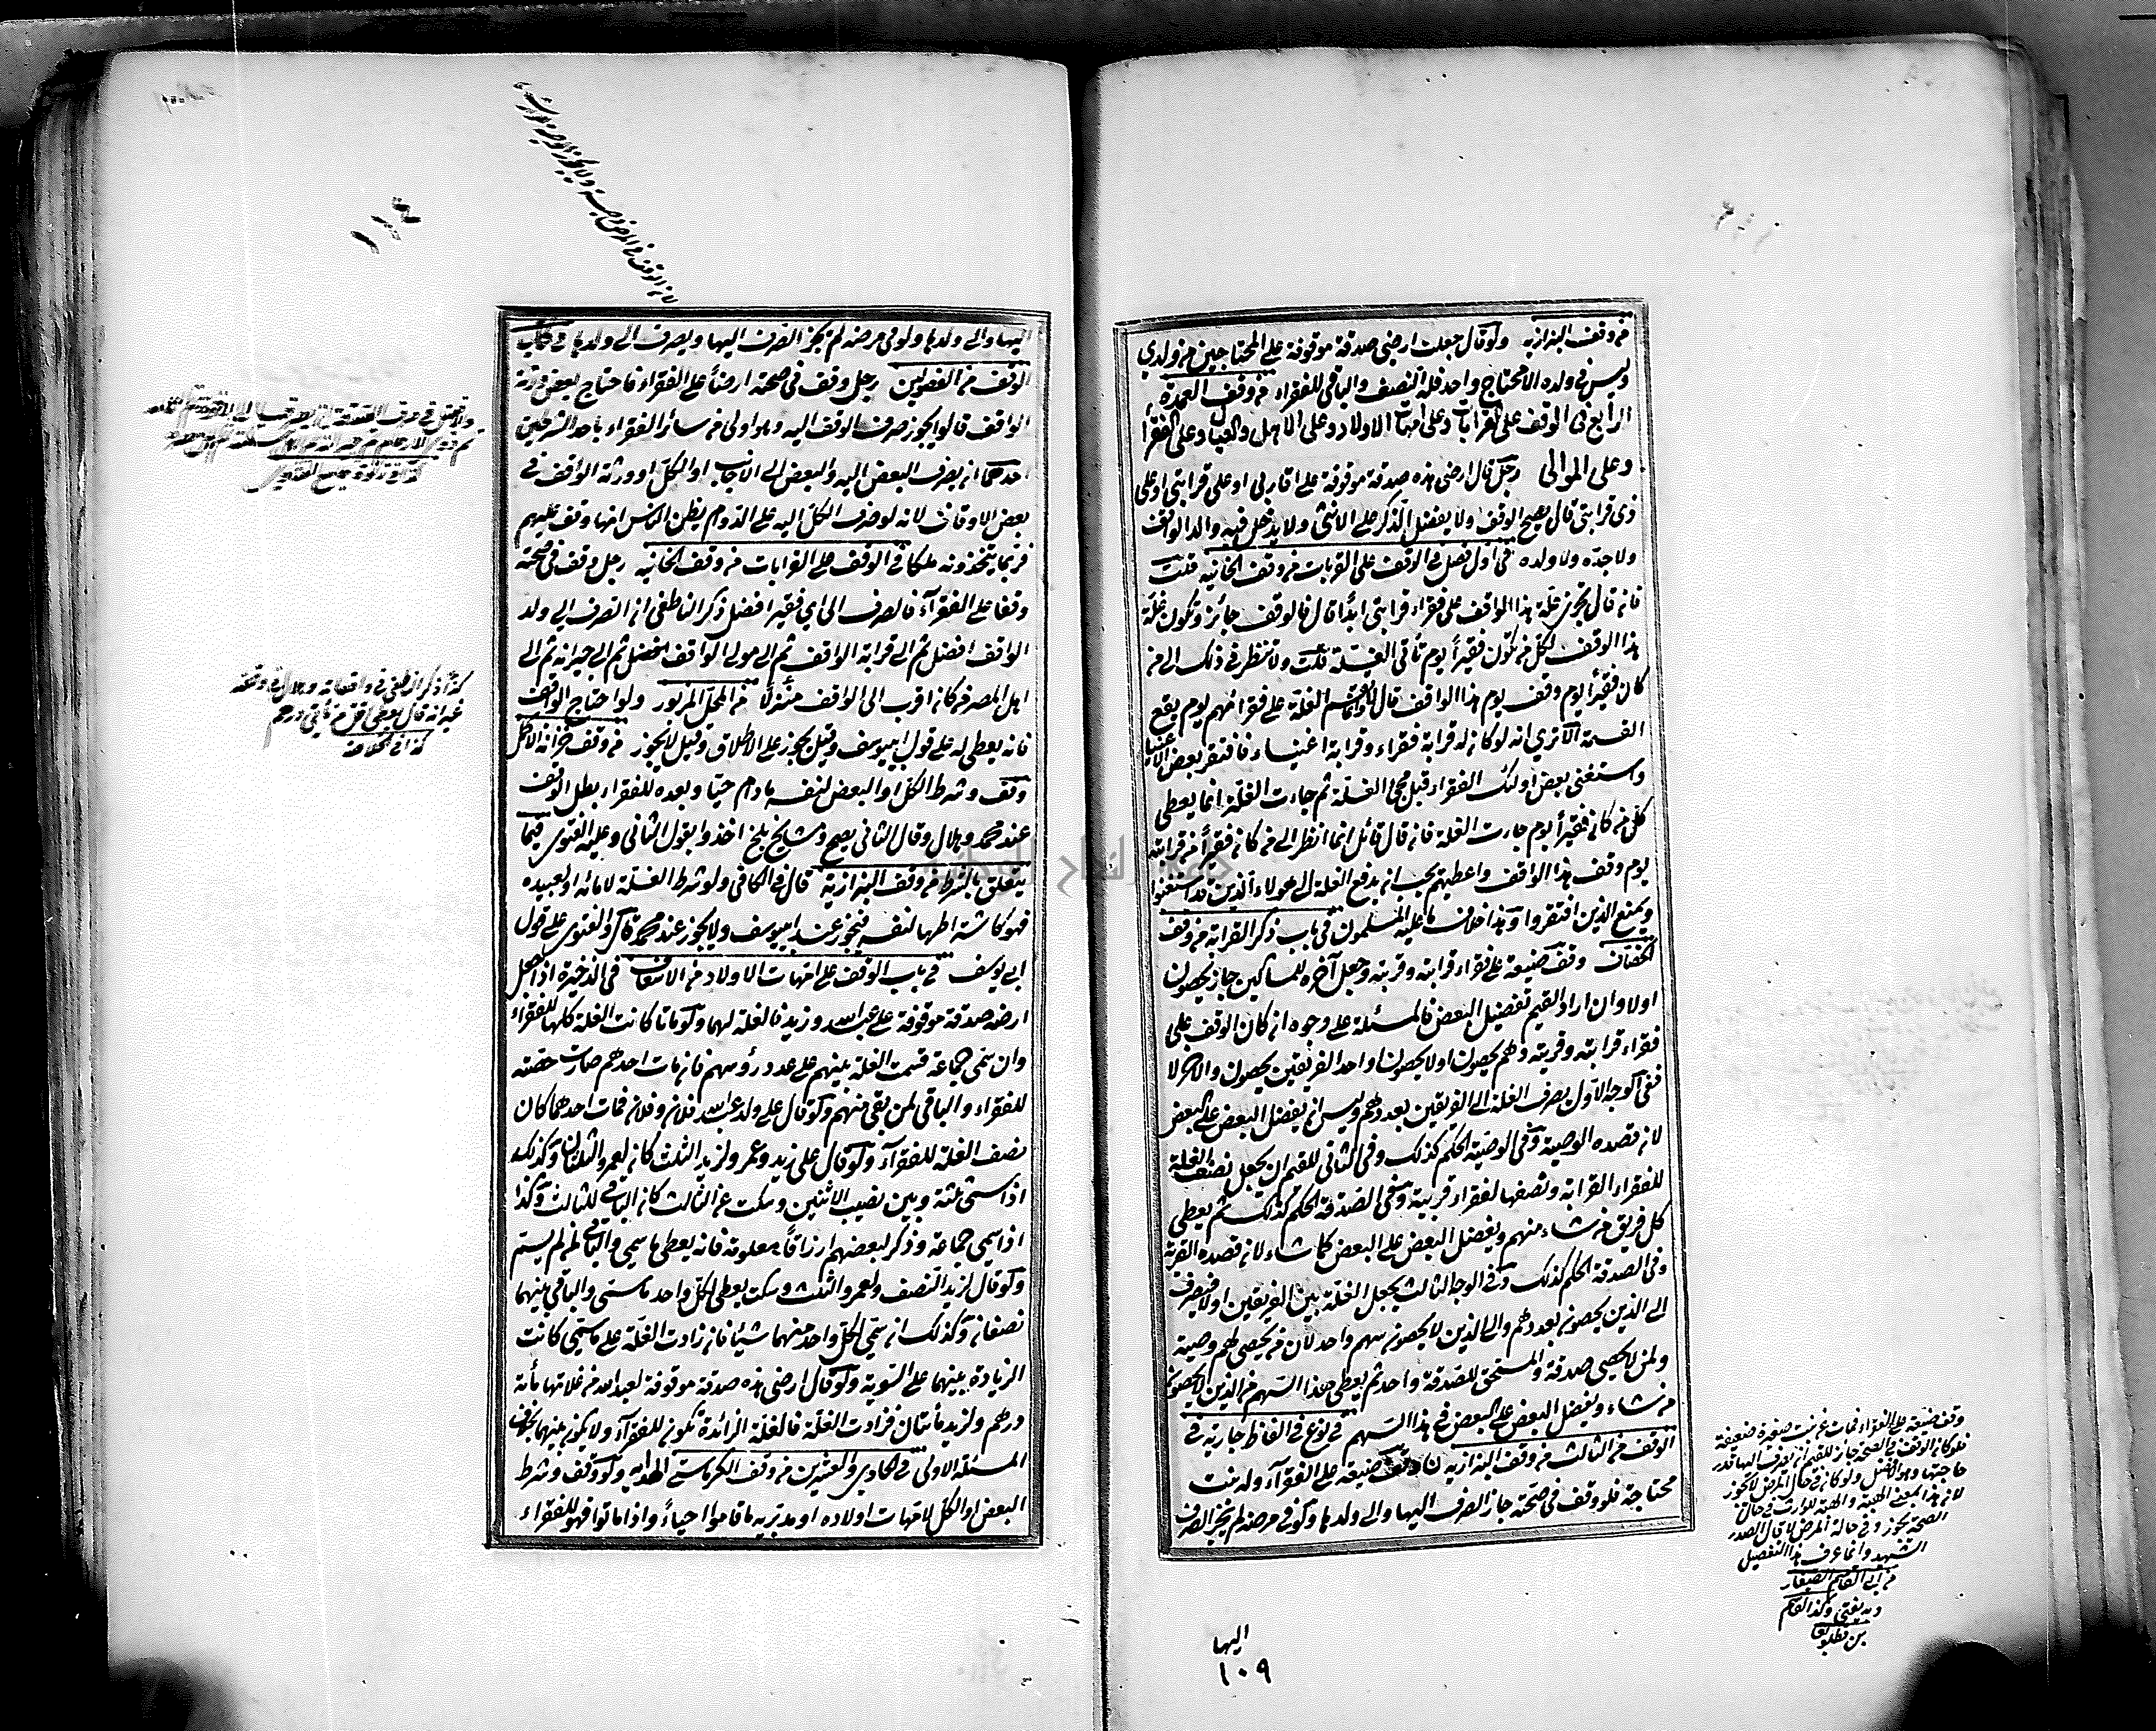 من وقف البزازيه ولو قال جعلت ارضي صدقة موقوفة على المحتاجين من ولدي
وليس في ولده الا محتاج واحد فله النصف والباقي للفقراء من وقف العمدة
الرابع في الوقف على القرابات وعلى امهات الاولاد وعلى الاهل والعيال وعلى الفقرأ
وعلى الموالي رجل قال ارضي هذه صدقة موقوفة على اقاربي او على قرابتي او على
ذي قرابتي قال يصح الوقف ولا يفضل الذكر على الانثى ولا يدخل فيه والد الواقف
ولا جده ولا ولده في اول فصل في الوقف على القربات من وقف الخانيه قلت
فان قال تجري غلة هذا الواقف على فقراء قرابتي ابدًا قال فالوقف جائز وتكون غلة
هذا الوقف لكل من تكون فقيرًا يوم تأتي الغلة قلت ولا تنظر في ذلك الى من
كان فقيرًا يوم وقف يوم هذا الواقف قال لا وانما تقسم الغلة على فقرائهم يوم يقع
القسمة الا تري انه لو كان له قرابة فقراء وقرابة اغنياء فافتقر بعض الاغنيا
واستغنى بعض اولئك الفقراء قبل مجئ الغلة ثم جاءت الغلة انما يعطى
كل من كان فقيرًا يوم جاءت الغلة فان قال قائل انما انظر الى من كان فقيرًا من قرابته
يوم وقف هذا الواقف واعطيهم يجب ان يدفع الغلة الى هولاء الذين قد استغنوا
ويمنع الذين افتقروا وهذا خلاف ما عليه المسلمون في باب ذكر القرابة من وقف
الخصاف وقف ضيعة على فقراء قرابته وقريته وجعل آخره للمساكين جاز يحصون
اولا وان اراد القيم تفضيل البعض فالمسئلة على وجوه ان كان الوقف على
فقراء قرابته وقريته وهم يحصون او لا يحصون او احد الفريقين يحصون والآخر لا
ففي الوجه الاول يصرف الغلة الى الفريقين بعددهم وليس له ان يفضل البعض على البعض
لان قصده الوصية وفي الوصية الحكم كذلك وفي الثاني للقيم ان يجعل نصف الغلة
للفقراء القرابة ونصفها لفقراء قريبة وفي الصدقة الحكم كذلك ثم يعطي
كل فريق من شاء منهم ويفضل البعض على البعض كما شاء لان قصده القربة
وفي الصدقة الحكم كذلك وفي الوجه الثالث يجعل الغلة بين الفريقين اولا فيصرف
الى الذين يحصون بعددهم والى الذين لا يحصون سهم واحد لان من يحصى لهم وصية
ولمن لا يحصى صدقة والمستحق للصدقة واحد ثم يعطى هذا السهم من الذين لا يحصون
من شاء ويفضل البعض على البعض في هذا السهم في نوع في الفاظ جارية في
الوقف من الثالث من وقف البزازيه وقف ضيعة على الفقرآء وله بنت
محتاجة فلو وقف في صحته جاز الصرف اليها والى ولدها ولو في مرضه لم يجز الصرف
وقف ضيعة على الفقراء فمات عن بنت صغيرة ضعيفة
فلو كان الوقف في الصحة جاز للقيم ان يصرف اليها قدر
حاجتها وهو افضل ولو كان في حال المرض لا يجوز
لان هذا بمعنى الهبة والهبة للوارث في حال
الصحة يجوز وفي حالة المرض لا قال الصدر
الشهيد وانما عرف هذا التفصيل
من ابي القاسم الصفار
وبه يفتى
اليها
١٠٩
١١٤
اليها والى ولدها ولو في مرضه لم يجز الصرف اليها ويصرف الى ولدها في كتاب
الوقف من الفصولين رجل وقف في صحته ارضًا على الفقراء فاحتاج بعض ورثة
الواقف قالوا يجوز صرف الوقف اليه وهو اولى من سائر الفقراء باحد الشرطين
احدهما ان يصرف البعض اليه والبعض الى الاجانب او الكل او ورثة الواقف في
بعض الاوقات لانه لو صرف الكل اليه على الدوام يظن الناس انها وقف عليهم
فربما يتخذونه ملكا في الوقف على القرابات من وقف الخانيه رجل وقف في صحته
وقفا على الفقرآء فالصرف الى اي فقير افضل ذكر الناطفي ان الصرف الى ولد
الواقف افضل ثم الى قرابة الواقف ثم الى موالي الواقف افضل ثم الى جيرانه ثم الى
اهل المصر من كان اقرب الى الواقف منزلًا من المحل المزبور ولو احتاج الواقف
فانه يعطى له على قول ابيوسف وقيل يجوز على الاطلاق وقيل لا يجوز من وقف خزانة الاكمل
وقف وشرط الكل او البعض لنفسه مادام حيًا وبعده للفقراء بطل الوقف
عند محمد وهلال وقال الثاني يصح ومشايخ بلخ اخذوا بقول الثاني وعليه الفتوى فيما
يتعلق بالشرط من وقف البزازية قال في الكافي ولو شرط الغلة لامائه او لعبيده
فهو كاشتراطها لنفسه فيجوز عند ابيوسف ولا يجوز عند محمد قال والفتوى على قول
ابي يوسف في باب الوقف على امهات الاولاد من الاسعاف في الذخيرة اذا جعل
ارضه صدقة موقوفة على عبد الله وزيد فالغلة لهما ولو ماتا كانت الغلة كلها للفقراء
وان سمى جماعة قسمت الغلة بينهم على عدد رؤسهم فان مات احدهم صارت حصته
للفقراء والباقي لمن بقي منهم ولو قال على ولد عبد الله فلان وفلان فمات احدهما كان
نصف الغلة للفقرآء ولو قال على زيد وعمرو لزيد الثلث كان لعمرو الثلثان وكذلك
اذا سمى ثلثة وبين نصيب الاثنين وسكت عن الثالث كان الباقي للثالث وكذا
اذا سمي جماعة وذكر لبعضهم ارزاقًا معلومة فانه يعطى ما سمي والباقي لمن لم يسم
ولو قال لزيد النصف ولعمرو الثلث وسكت يعطى لكل واحد ما سمى والباقي بينهما
نصفان وكذلك ان سمى لكل واحد منهما شيئا فان زادت الغلة على ما سمى كانت
الزيادة بينهما على السوية ولو قال ارضي هذه صدقة موقوفة لعبد الله من غلاتها مأة
درهم ولزيد مأتان فزادت الغلة فالغلة الزائدة تكون للفقرآء ولا يكون بينهما بخلاف
المسئلة الاولى في الحادي والعشرين من وقف الكرماستى الهدايه ولو وقف وشرط
البعض او الكل لامهات اولاده او مدبريه ما قاموا احياءً واذا ماتوا فهو للفقراء
كذا ذكر الناطفي في واقعاته وهلال في وقفه
غير انه قال يعطى اقل من مأتي درهم
كذا في الخلاصة